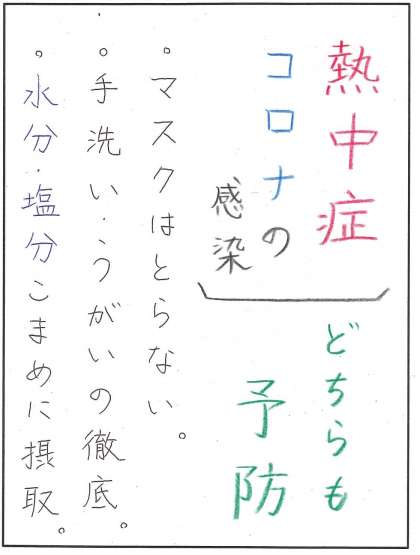 熱中症
コロナの
感染
どちらも
予防
。マスクはとらない。
。手洗い・うがいの徹底。
。水分・塩分こまめに摂取。